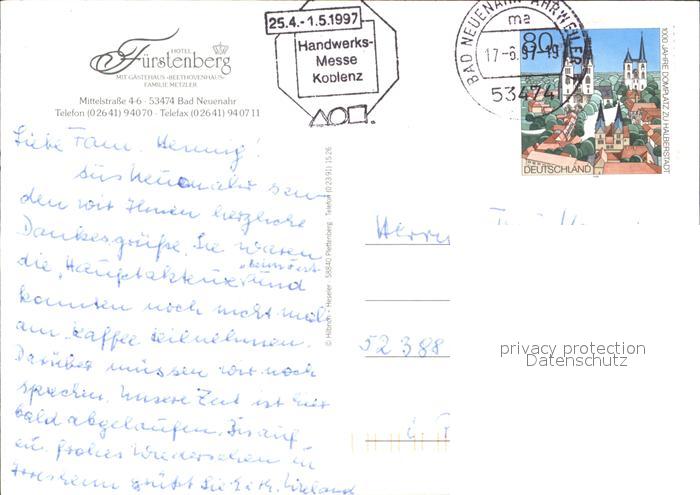 HOTEL
Fürstenberg
MIT GÄSTEHAUS »BEETHOVENHAUS«
FAMILIE METZLER
Mittelstraße 4-6 · 53474 Bad Neuenahr
Telefon (0 26 41) 940 70 · Telefax (0 26 41) 940 711
25.4.-1.5.1997
Handwerks-
Messe
Koblenz
BAD NEUENAHR-AHRWEILER
ma
17-6.97-19
53474
80
DEUTSCHLAND
1000 JAHRE DOMPLATZ ZU HALBERSTADT
Liebe Fam. !
Aus Neuenahr sen-
den wir Ihnen herzliche
Dankesgrüße. Sie waren
die "Hauptakteure"
und
konnten noch nicht mal
am Kaffee teilnehmen.
Darüber müssen wir noch
sprechen. Unsere Zeit ist hier
bald abgelaufen. Bis auf
ein frohes Wiedersehen in
grüßt Sie
© Hilbrich + Heseler · 58840 Plettenberg · Telefon (0 23 91) 15 26
Herrn
52388
privacy protection
Datenschutz